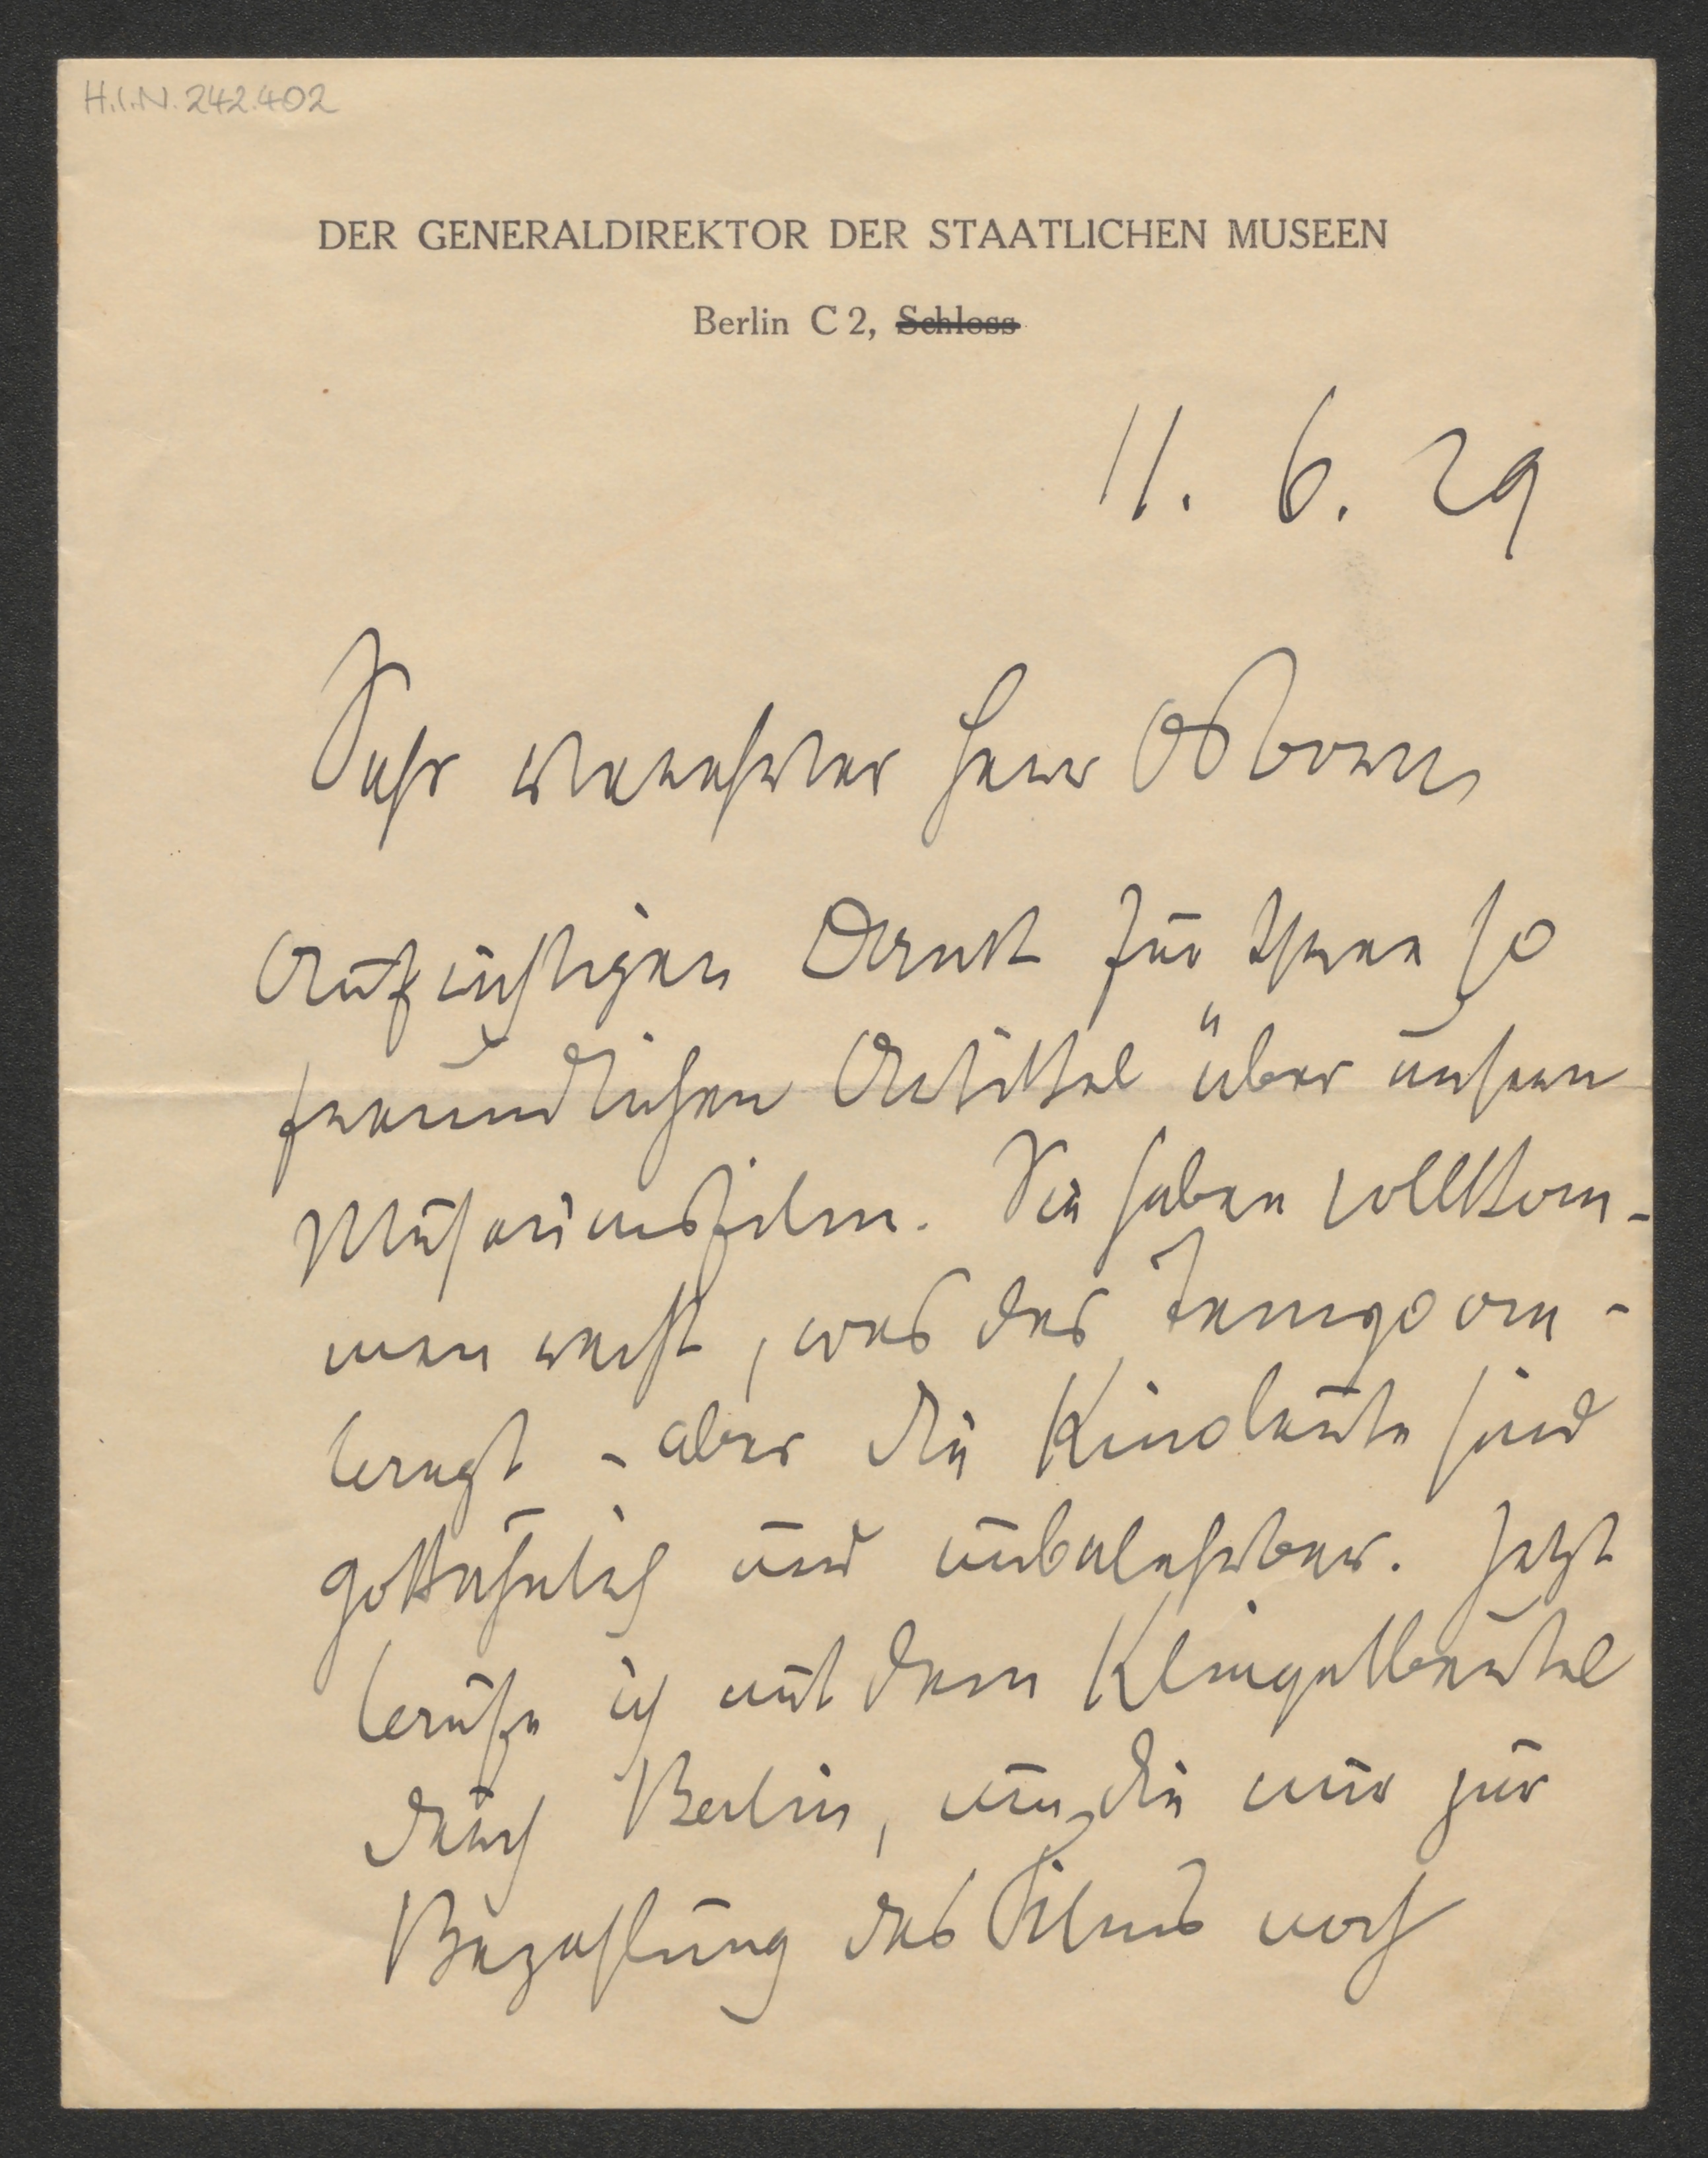 H.I.N. 242.402
DER GENERALDIREKTOR DER STAATLICHEN MUSEEN
Berlin C 2, Schloss
11. 6. 29
Sehr verehrter Herr Osborn,
Aufrichtigen Dank für Ihren so
freundlichen Artikel über unsern
Museumsfilm. Sie haben vollkom-
men recht, was das Tempo an-
langt - aber die Kinoleute sind
gottähnlich und unbelehrbar. Jetzt
laufe ich mit dem Klingelbeutel
durch Berlin, um die mir zur
Bezahlung des Films noch